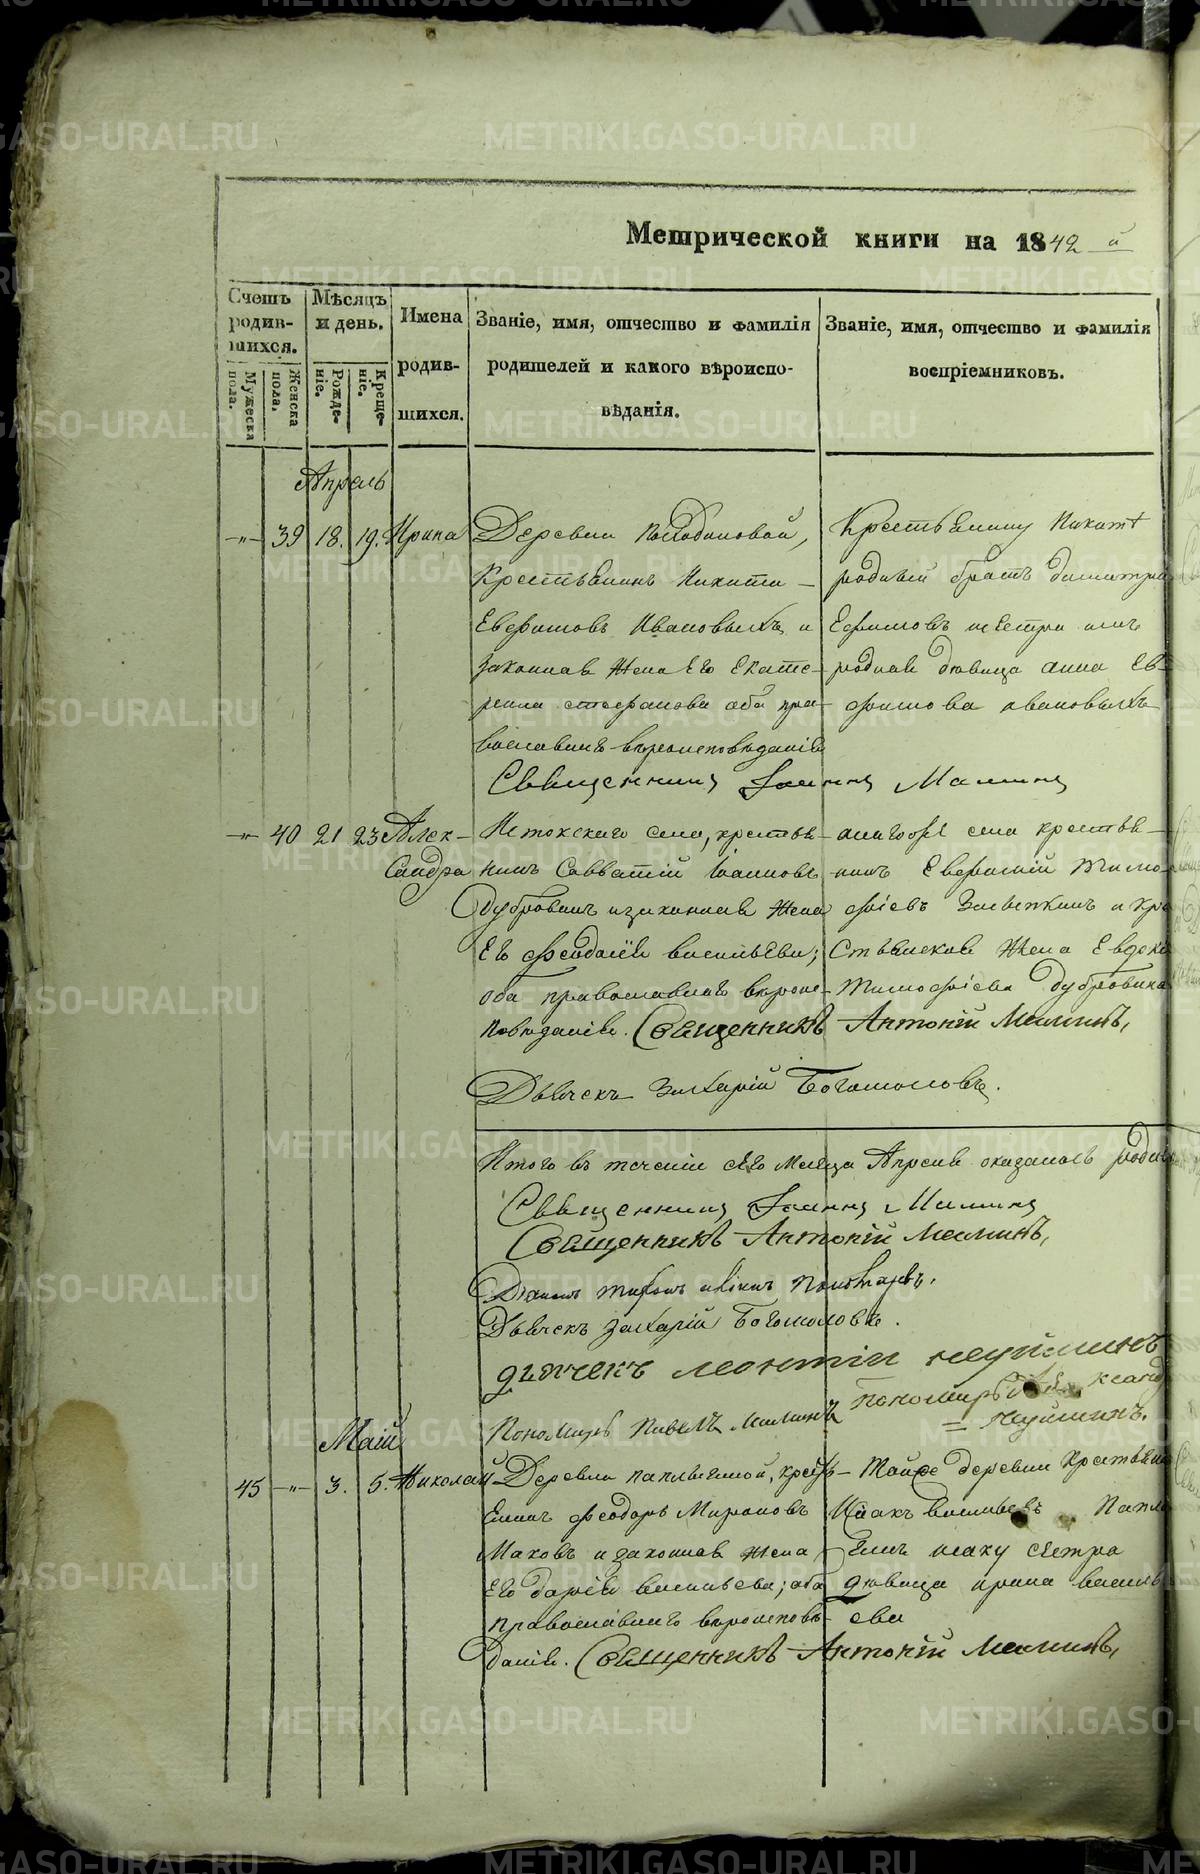 Метрической книги на 1842 й
Счетъ родив-шихся.
Мужеска пола.
Женска пола.
Мѣсяцъ и день.
Рожде-ніе.
Креще-ніе.
Имена родив-шихся.
Званіе, имя, отчество и фамилія родителей и какого вѣроиспо-вѣданія.
Званіе, имя, отчество и фамилія воспріемниковъ.
Апрель
39 18. 19. Ирина
Деревни
Крестьянинъ Никита
Евфимовъ Ивановыхъ и
законная жена его Екате-
рина Стефанова оба пра-
вославнаго вѣроисповѣданія
Крестьянину Никитѣ
родный братъ Димитрій
Ефимовъ и сестра ихъ
родная дѣвица Анна Ев-
фимова Ивановыхъ
Священникъ Іоаннъ Маминъ
40 21 23 Алек-
сандра
Истокскаго села, крестья-
нинъ Савватій Іоанновъ
Дубровинъ и законная жена
его Феодосія Васильева;
оба православнаго вѣроис-
повѣданія. Священникъ Антоній Маминъ,
села крестья-
нинъ Евфимій Тимо-
фѣевъ и кре
стьянская жена Евдокі
Тимофѣева Дубровина
Дьячекъ Захарій Богомоловъ.
Итого въ теченіи сего месяца Апреля оказалось родив
Священникъ Іоаннъ Маминъ
Священникъ Антоній Маминъ,
Пономаревъ.
Дьячекъ Захарій Богомоловъ.
дьячекъ Леонтій Неуйминъ
Пономарь Павелъ Маминъ
Пономарь
Неуйминъ.
Май
45 3. 5. Николай
Деревни крест-
янинъ Феодоръ Мироновъ
и законная жена
его Дарія Васильева; оба
православнаго вѣроисповѣ-
данія. Священникъ Антоній Маминъ,
Тойже деревни Крестьяни
Исаакъ Васильевъ
Исаку сестра
дѣвица Ирина Василь
ева
METRIKI.GASO-URAL.RU